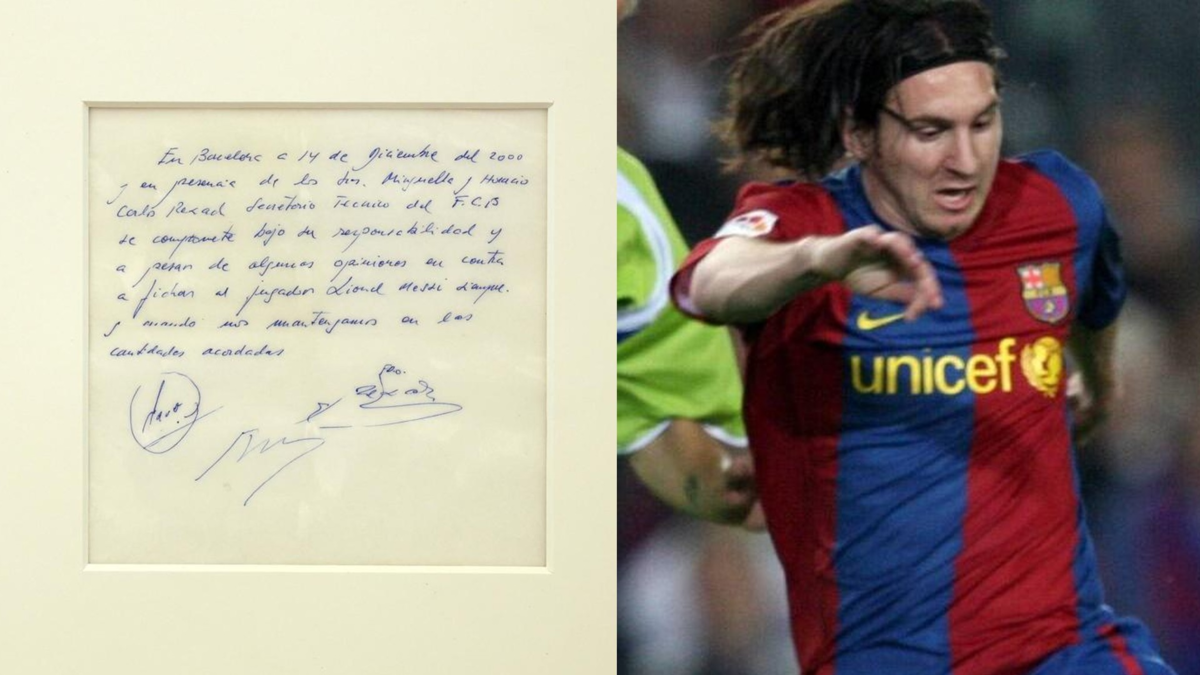 En Barcelona a 14 de Diciembre del 2000
y en presencia de los Srs. Minguella y Horacio
Carlos Rexach Secretario Tecnico del F.C.B
se compromete bajo su responsabilidad y
a pesar de algunas opiniones en contra
a fichar al jugador Lionel Messi siempre.
y cuando nos mantengamos en las
cantidades acordadas
unicef